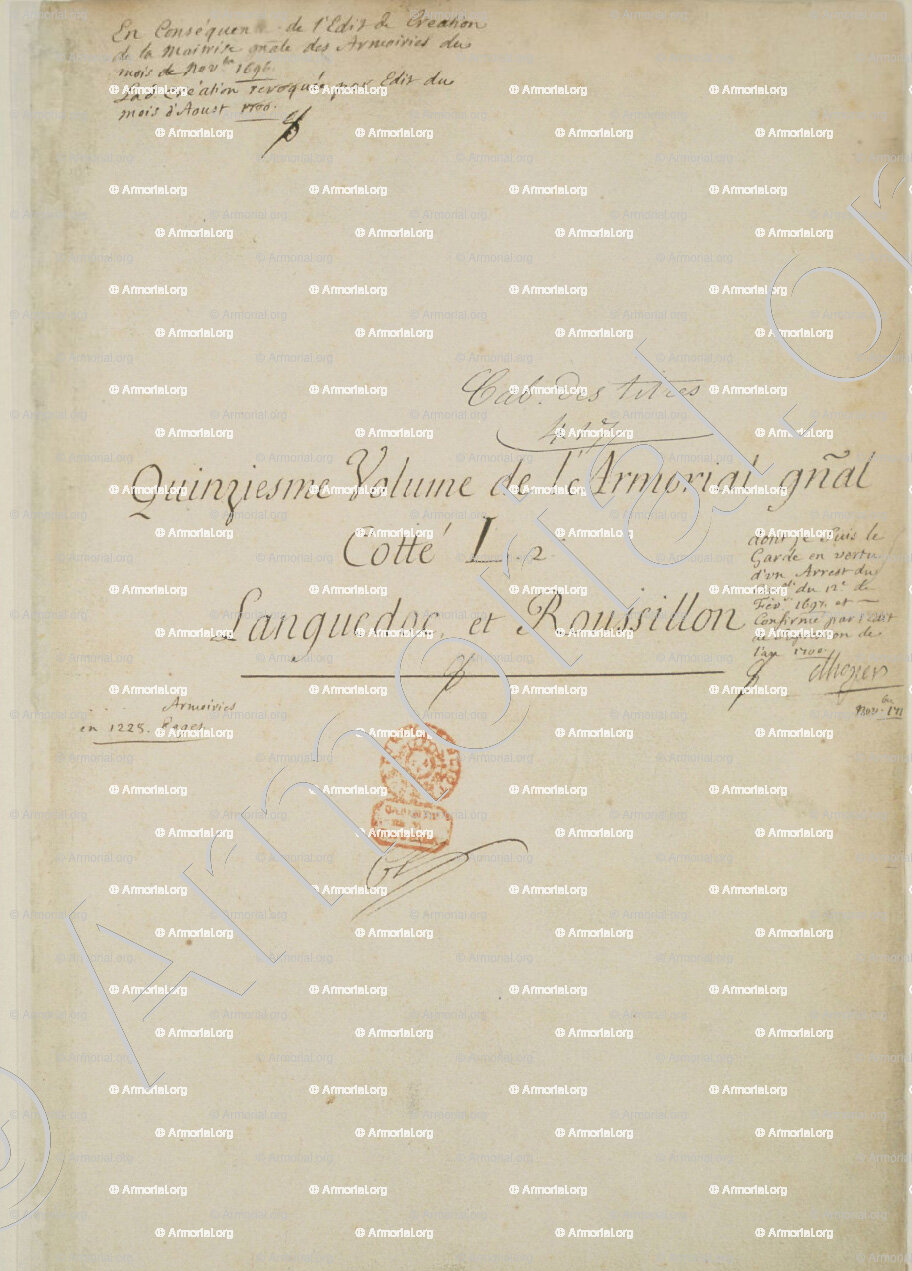 En Conséquence de l'Edit de Création
de la Maitrise gñale des Armoiries du
mois de Nov.bre 1696.
Création revoquée par Edit du
mois d'Aoust 1700.
Cab. des titres
Quinziesme Volume de l'Armorial gñal
Cotté L. 2
Languedoc, et Roussillon
dont je suis le
Garde en vertu
d'un Arrest du
du 12e de
Fév. 1697. et
Confirmé par l'Edit
de
1700.
d'hozier
Armoiries
en 1225. Pages.
© Armorial.org